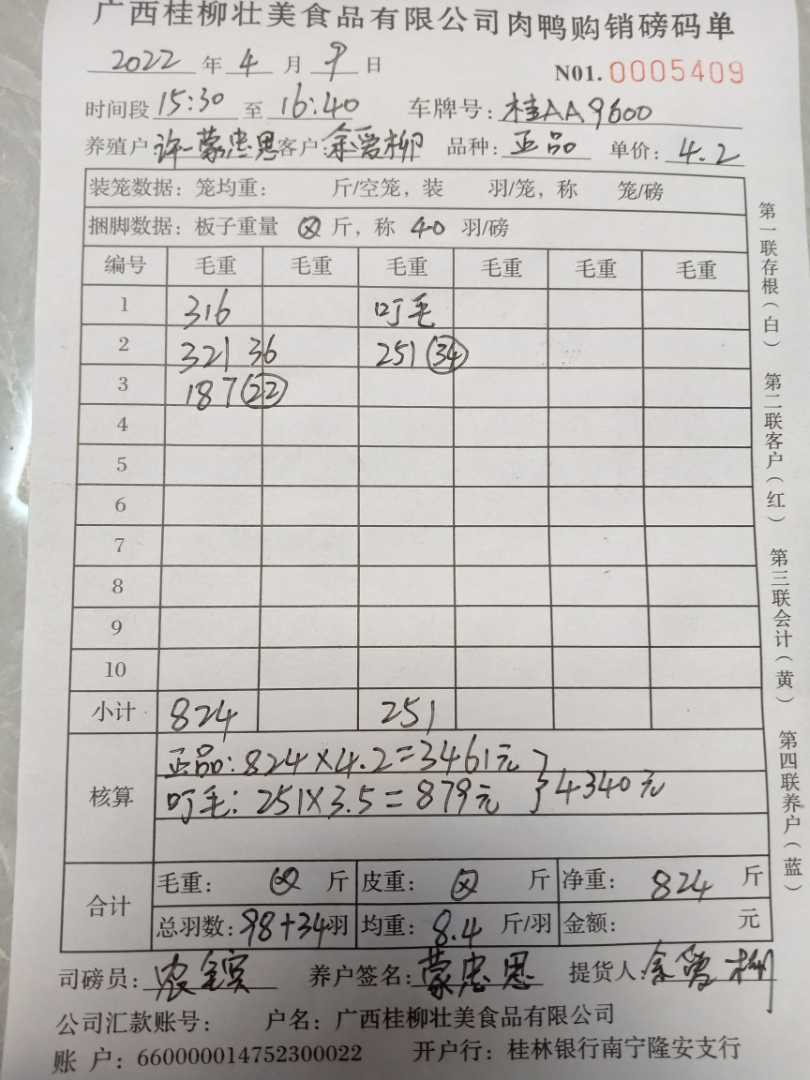 广西桂柳壮美食品有限公司肉鸭购销磅码单
2022 年 4 月 9 日 N01. 0005409
时间段 15:30 至 16:40 车牌号: 桂AA9600
养殖户 许-蒙忠恩 客户: 余爱柳 品种: 正品 单价: 4.2
装笼数据: 笼均重: 斤/空笼, 装 羽/笼, 称 笼/磅
捆脚数据: 板子重量 斤, 称 40 羽/磅
编号 毛重 毛重 毛重 毛重 毛重 毛重
1 316 叮毛
2 321 36 251 34
3 187 22
4
5
6
7
8
9
10
小计 824 251
核算 正品: 824×4.2=3461元
叮毛: 251×3.5=879元 }4340元
合计 毛重: 斤 皮重: 斤 净重: 824 斤
总羽数: 98+34羽 均重: 8.4 斤/羽 金额: 元
司磅员: 农宝宾 养户签名: 蒙忠恩 提货人: 余爱柳
公司汇款账号: 户名: 广西桂柳壮美食品有限公司
账 户: 660000014752300022 开户行: 桂林银行南宁隆安支行
第一联存根(白) 第二联客户(红) 第三联会计(黄) 第四联养户(蓝)